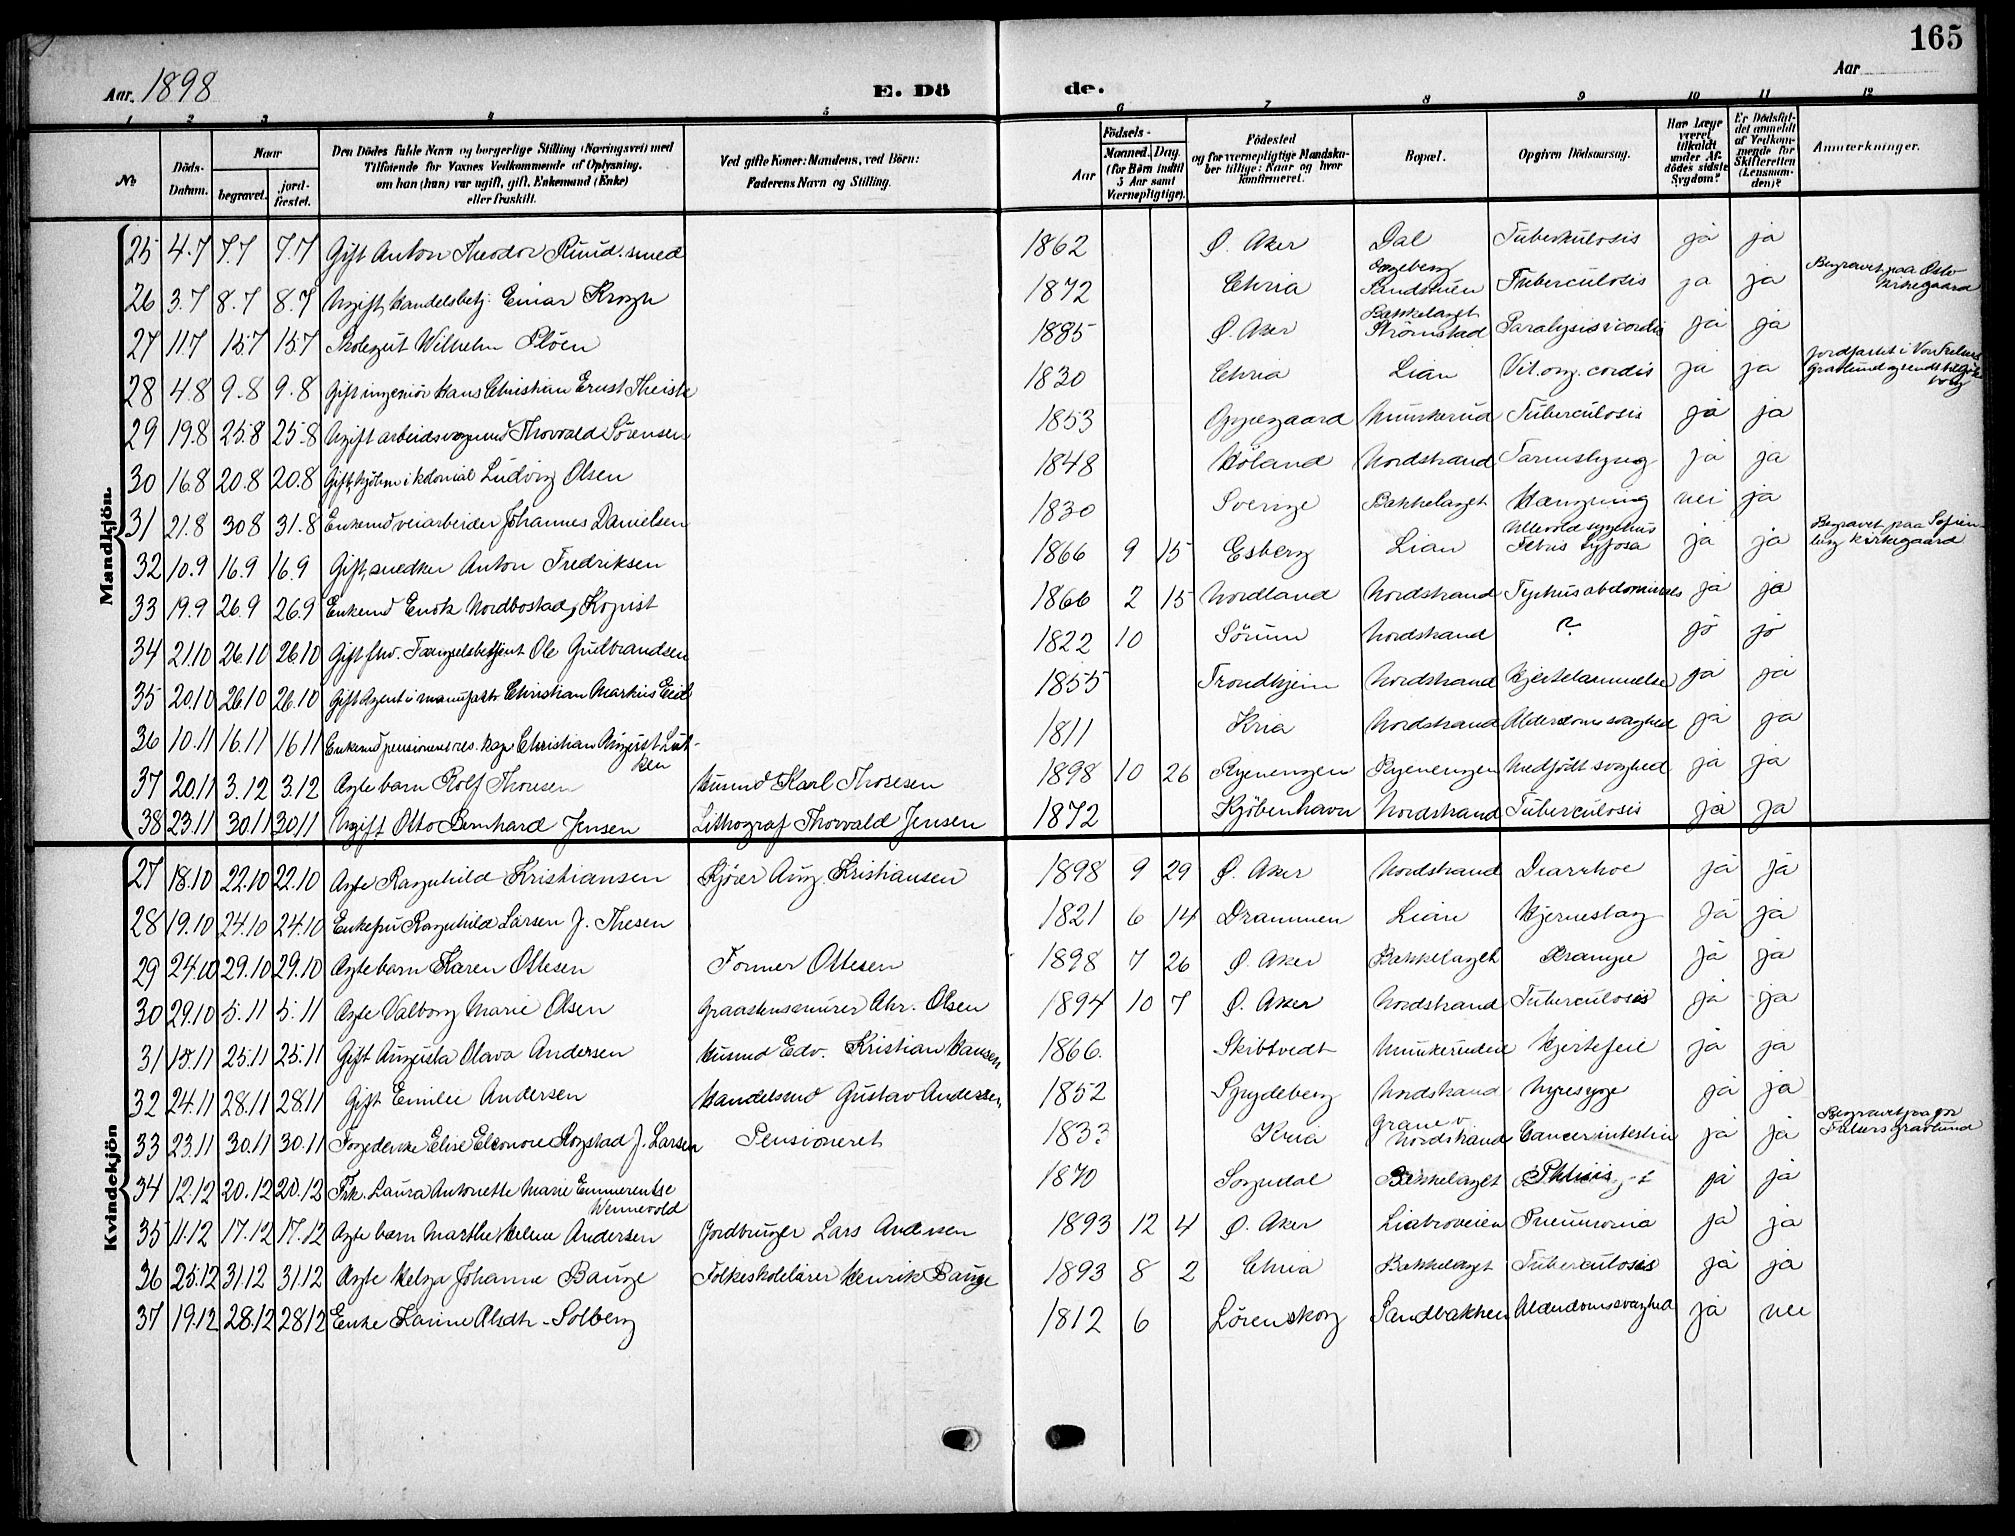 165
Aar. 1898
E. Dö de.
Aar
1 2 3 4 5 6 7 8 9 10 11 12
No
Döds-Datum.
Naar begravet. jordfæstet.
Den Dödes fulde Navn og borgerlige Stilling (Næringsvei) med Tilföiende for Voxnes Vedkommende af Oplysning. om han (hun) var ugift, gift, Enkemand (Enke) eller fraskilt.
Ved gifte Koner: Mandens, ved Börn: Faderens Navn og Stilling.
Födsels- Aar Maaned. Dag. (for Børn indtil 5 Aar samt Værnepligtige).
Födested og for værnepligtige Mandskaber tillige: Naar og hvor konfirmeret.
Bopæl.
Opgiven Dödsaarsag.
Har Læge været tilkaldt under Afdödes sidste Sygdom?
Er Dödsfaldet anmeldt af Vedkommende for Skifteretten (Lensmanden)?
Anmerkninger.
Mandkjön.
25 4.7 7.7 7.7 Gift Anton Theodor Ruud. smed 1862 Ø. Aker Dal Tuberkulosis ja ja
26 3.7 8.7 8.7 Ugift, handelsbetj. Einar Krogh 1872 Chria Sandstuen Tuberculosis ja ja Begravet paa Oslo kirkegaard
27 11.7 15.7 15.7 Skolegut Wilhelm Pløen 1885 Ø. Aker Bækkelaget Strømstad Paralysis cordis ja ja
28 4.8 9.8 9.8 Gift ingeniör Hans Christian Ernst Theiste 1830 Chria Lian Vit. org. cordis ja ja Jordfæstet i Vor Frelsers Gravlund
29 19.8 25.8 25.8 Ugift arbeidsmand Thorvald Sørensen 1853 Oppegaard Munkerud Tuberculosis ja ja
30 16.8 20.8 20.8 Gift, kjøbm i kolonial Ludvig Olsen 1848 Høland Nordstrand Tarmslyng ja ja
31 21.8 30.8 31.8 Enkemd veiarbeider Johannes Danielsen 1830 Sverige Bækkelaget Hængning nei ja
32 10.9 16.9 16.9 Gift, snedker Anton Fredriksen 1866 9 15 Esberg Lian Ullevold sygehus Febris tyfosa ja ja Begravet paa Sofienberg kirkegaard
33 19.9 26.9 26.9 Enkemd Enok Nordbostad, Kopist 1866 2 15 Nordland Nordstrand Typhus abdominalis ja ja
34 21.10 26.10 26.10 Gift fhv. Fængselsbetjent Ole Gudbrandsen 1822 10 Sørum Nordstrand ? jo jo
35 20.10 26.10 26.10 Gift Agent i manufakt. Christian Markus Eid 1855 Trondhjem Nordstrand Hjertelammelse ja ja
36 10.11 16.11 16.11 Enkemd pensioneret res. kap Christian August Lütken 1811 Kria Nordstrand Alderdomssvaghed ja ja
37 20.11 3.12 3.12 Ægte barn Rolf Thoresen Husmd Karl Thoresen 1898 10 26 Ryenengen Ryenengen Medfödt svaghed ja ja
38 23.11 30.11 30.11 Ugift Otto Bernhard Jensen Lithograf Thorvald Jensen 1872 Kjöbenhavn Nordstrand Tuberculosis ja ja
Kvindekjön
27 18.10 22.10 22.10 Ægte Ragnhild Kristiansen Kjörer Aug. Kristiansen 1898 9 29 Ø. Aker Nordstrand Diarrhoe ja ja
28 19.10 24.10 24.10 Enkefru Ragnhild Larsen f. Thesen 1821 6 14 Drammen Lian Hjerneslag ja ja
29 24.10 29.10 29.10 Ægte barn Karen Ottesen Former Ottesen 1898 7 26 Ø. Aker Bækkelaget Krampe ja ja
30 29.10 5.11 5.11 Ægte Valborg Marie Olsen Graastensmurer Ahr. Olsen 1894 10 7 Ø. Aker Nordstrand Tuberculosis ja ja
31 15.11 25.11 25.11 Gift Augusta Olava Andersen Husmd Edv. Kristian Hansen 1866 Skibtvedt Munkerudeie Hjertefeil ja ja
32 24.11 28.11 28.11 Gift Emilie Andersen Handelsmd Gustav Andersen, 1852 Spydeberg Nordstrand Nyresyge ja ja
33 23.11 30.11 30.11 Fogedenke Elise Eleonore Rogstad f. Larsen Pensioneret 183? Kria Grane v Nordstrand Cancer intestin ja ja Begravet paa Vor Frelsers Gravlund
34 12.12 20.12 20.12 Frk. Laura Antonette Marie Emmerentse Wennevold 1870 Sogndal Bækkelaget Phthisis ja ja
35 11.12 17.12 17.12 Ægte barn Marthe Helene Andersen Jordbruger Lars Andersen 1893 12 4 Ø. Aker Liabroveien Pneumonia ja ja
36 25.12 31.12 31.12 Ægte Helga Johanne Bauge Folkeskolelærer Henrik Bauge 1893 8 2 Chria Bækkelaget Tuberculosis ja ja
37 19.12 28.12 28.12 Enke Karine Olsdtr. Solberg 1812 6 Lörenskog Sandbakken Alderdomssvaghed ja nei